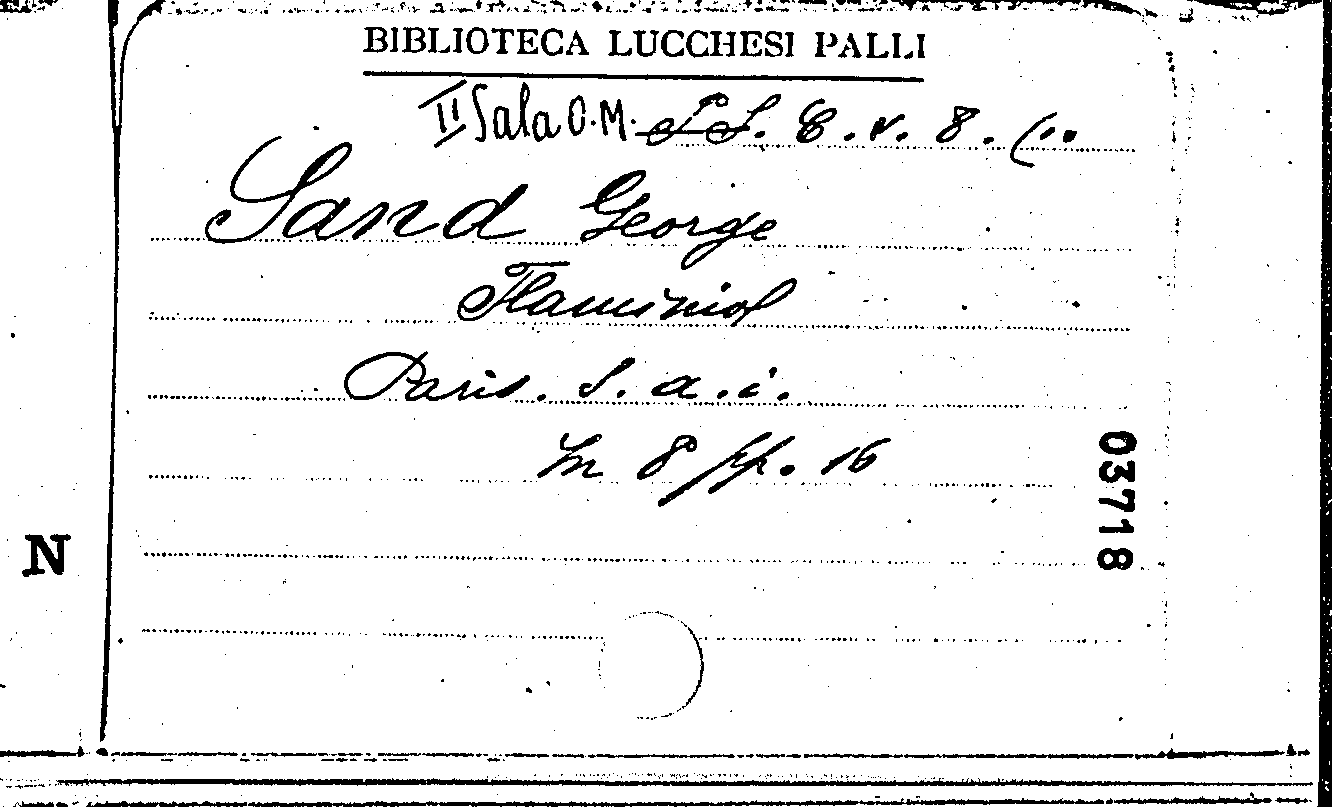 BIBLIOTECA LUCCHESI PALLI
II Sala O.M. S. C. V. 8. (..
Sand George
Flaminiol
Paris. S. a. i.
In 8 pp. 16
03718
N